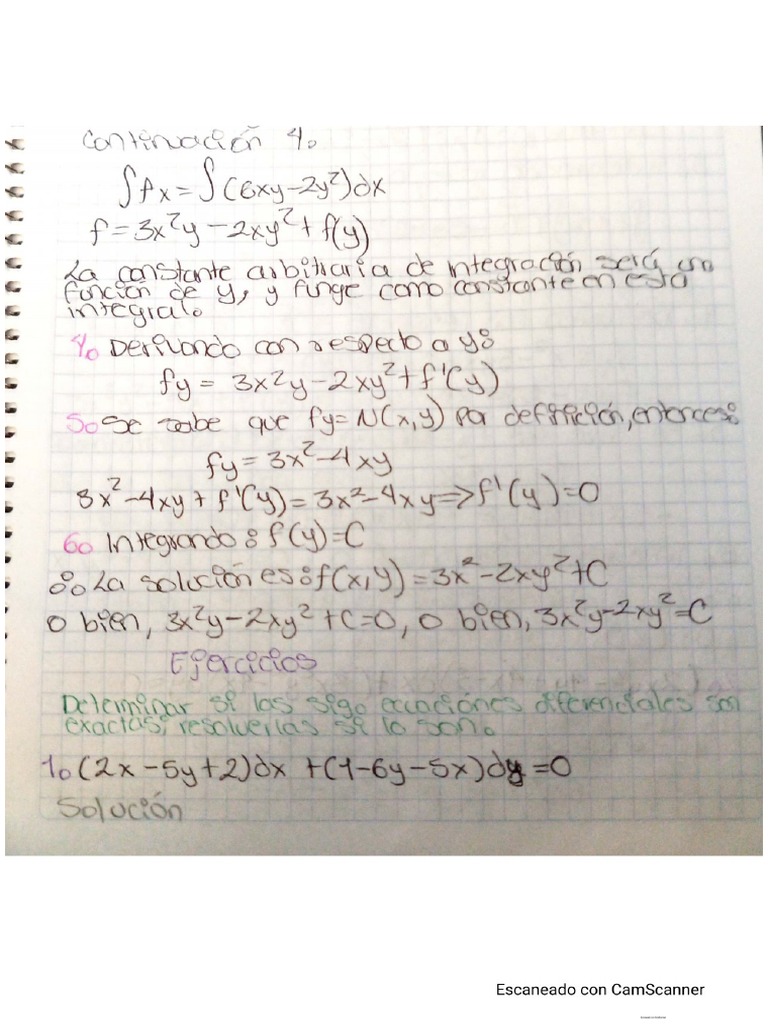 Continuación 4.
∫fx = ∫(6xy-2y²)dx
f = 3x²y - 2xy² + f(y)
La constante arbitraria de integración será una
función de y, y funge como constante en esta
integral.
4. Derivando con respecto a y:
fy = 3x²y - 2xy² + f'(y)
5. Se sabe que fy = N(x,y) Por definición, entonces:
fy = 3x² - 4xy
3x² - 4xy + f'(y) = 3x² - 4xy => f'(y) = 0
6. Integrando: f(y) = C
∴ La solución es: f(x,y) = 3x² - 2xy² + C
O bien, 3x²y - 2xy² + C = 0, o bien, 3x²y - 2xy² = C
Ejercicios
Determinar si las sig. ecuaciónes diferenciales son
exactas; resolverlas si lo son.
1. (2x - 5y + 2)dx + (1 - 6y - 5x)dy = 0
Solución
Escaneado con CamScanner